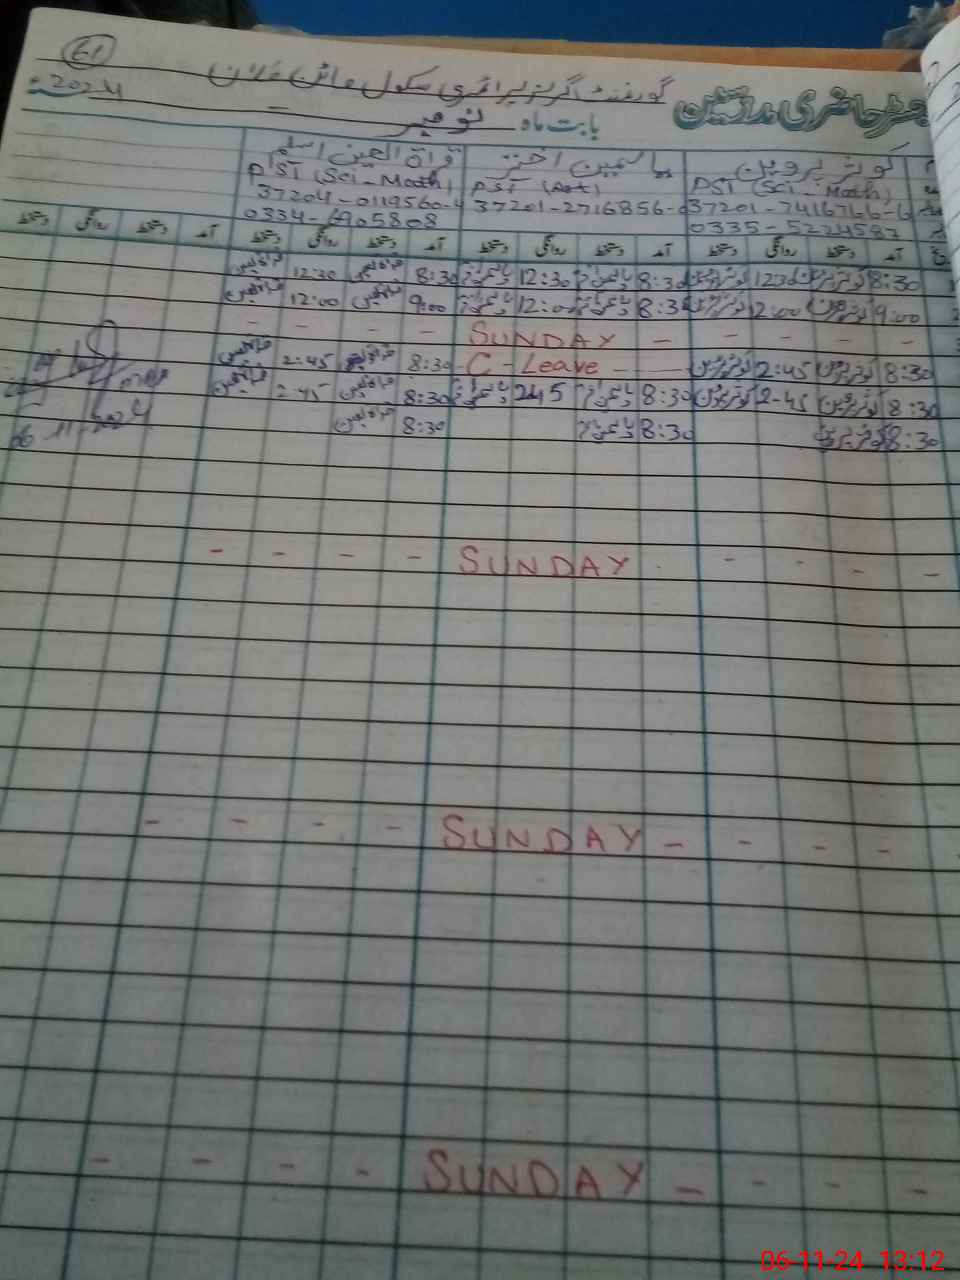 61
رجسٹر حاضری مدرسین گورنمنٹ گرلز پرائمری سکول
2024ء بابت ماہ نومبر
کوثر پروین یاسمین اختر قراة العین اسلم
PST (Sci-Math) PST (Art) PST (Sci-Math)
37201-7416766-6 37201-2716856- 37204-0119560-4
0335-5224587 0334-6905808
آمد دستخط روانگی دستخط آمد دستخط روانگی دستخط آمد دستخط روانگی دستخط آمد دستخط روانگی دستخط
8:30 کوثر پروین 12:30 کوثر پروین 8:30 یاسمین اختر 12:30 یاسمین اختر 8:30 قراة العین 12:30 قراة العین
9:00 کوثر پروین 12:00 کوثر پروین 8:30 یاسمین اختر 12:00 یاسمین اختر 9:00 قراة العین 12:00 قراة العین
- - - - SUNDAY - - - - -
8:30 کوثر پروین 2:45 کوثر پروین - C - Leave - 8:30 قراة العین 2:45 قراة العین
8:30 کوثر پروین 2-45 کوثر پروین 8:30 یاسمین اختر 245 یاسمین اختر 8:30 قراة العین 2:45 قراة العین
8:30 کوثر پروین 8:30 یاسمین اختر 8:30 قراة العین
06-11-2024
- - - - SUNDAY - - - -
- - - - SUNDAY - - - - -
- - - - SUNDAY - - - -
06-11-24 13:12